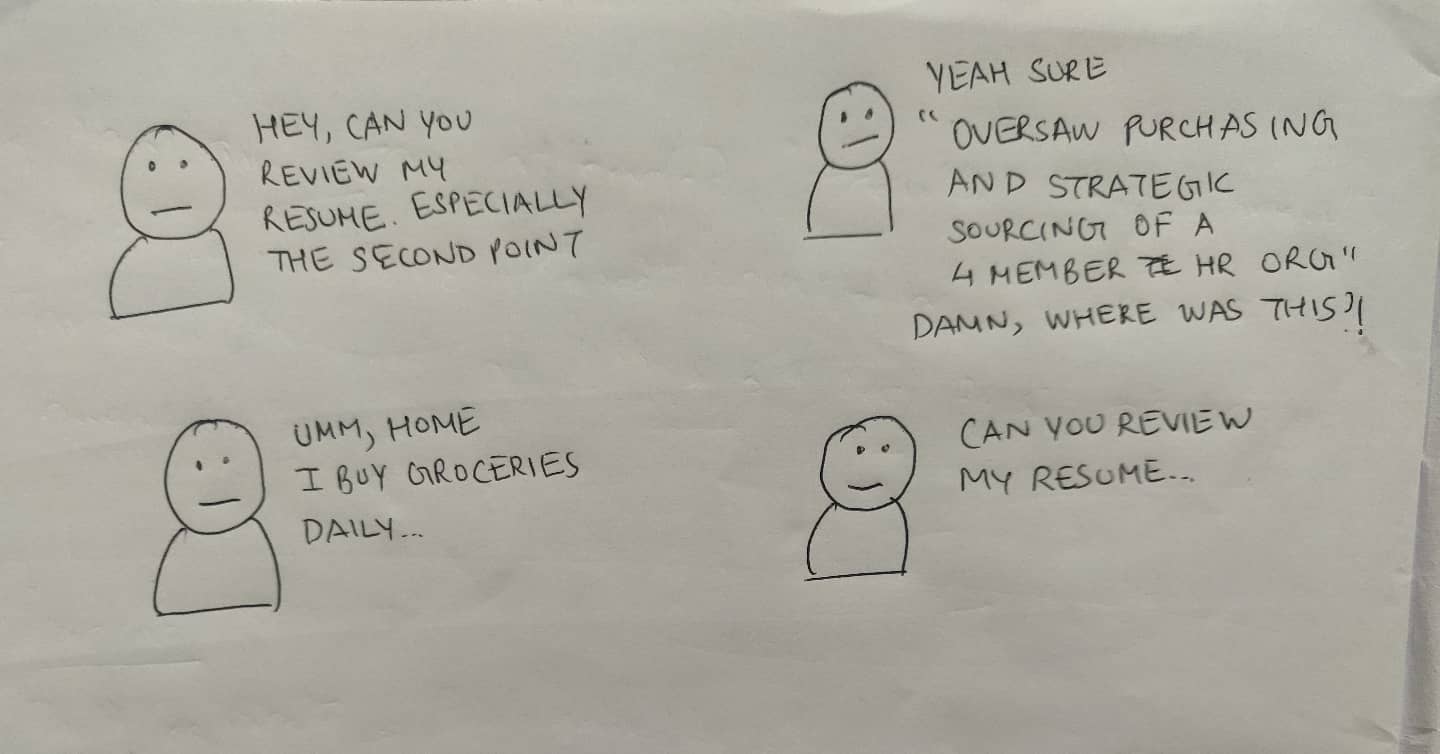 HEY, CAN YOU
REVIEW MY
RESUME. ESPECIALLY
THE SECOND POINT
YEAH SURE
"OVERSAW PURCHASING
AND STRATEGIC
SOURCING OF A
4 MEMBER HR ORG"
DAMN, WHERE WAS THIS?!
UMM, HOME
I BUY GROCERIES
DAILY...
CAN YOU REVIEW
MY RESUME...